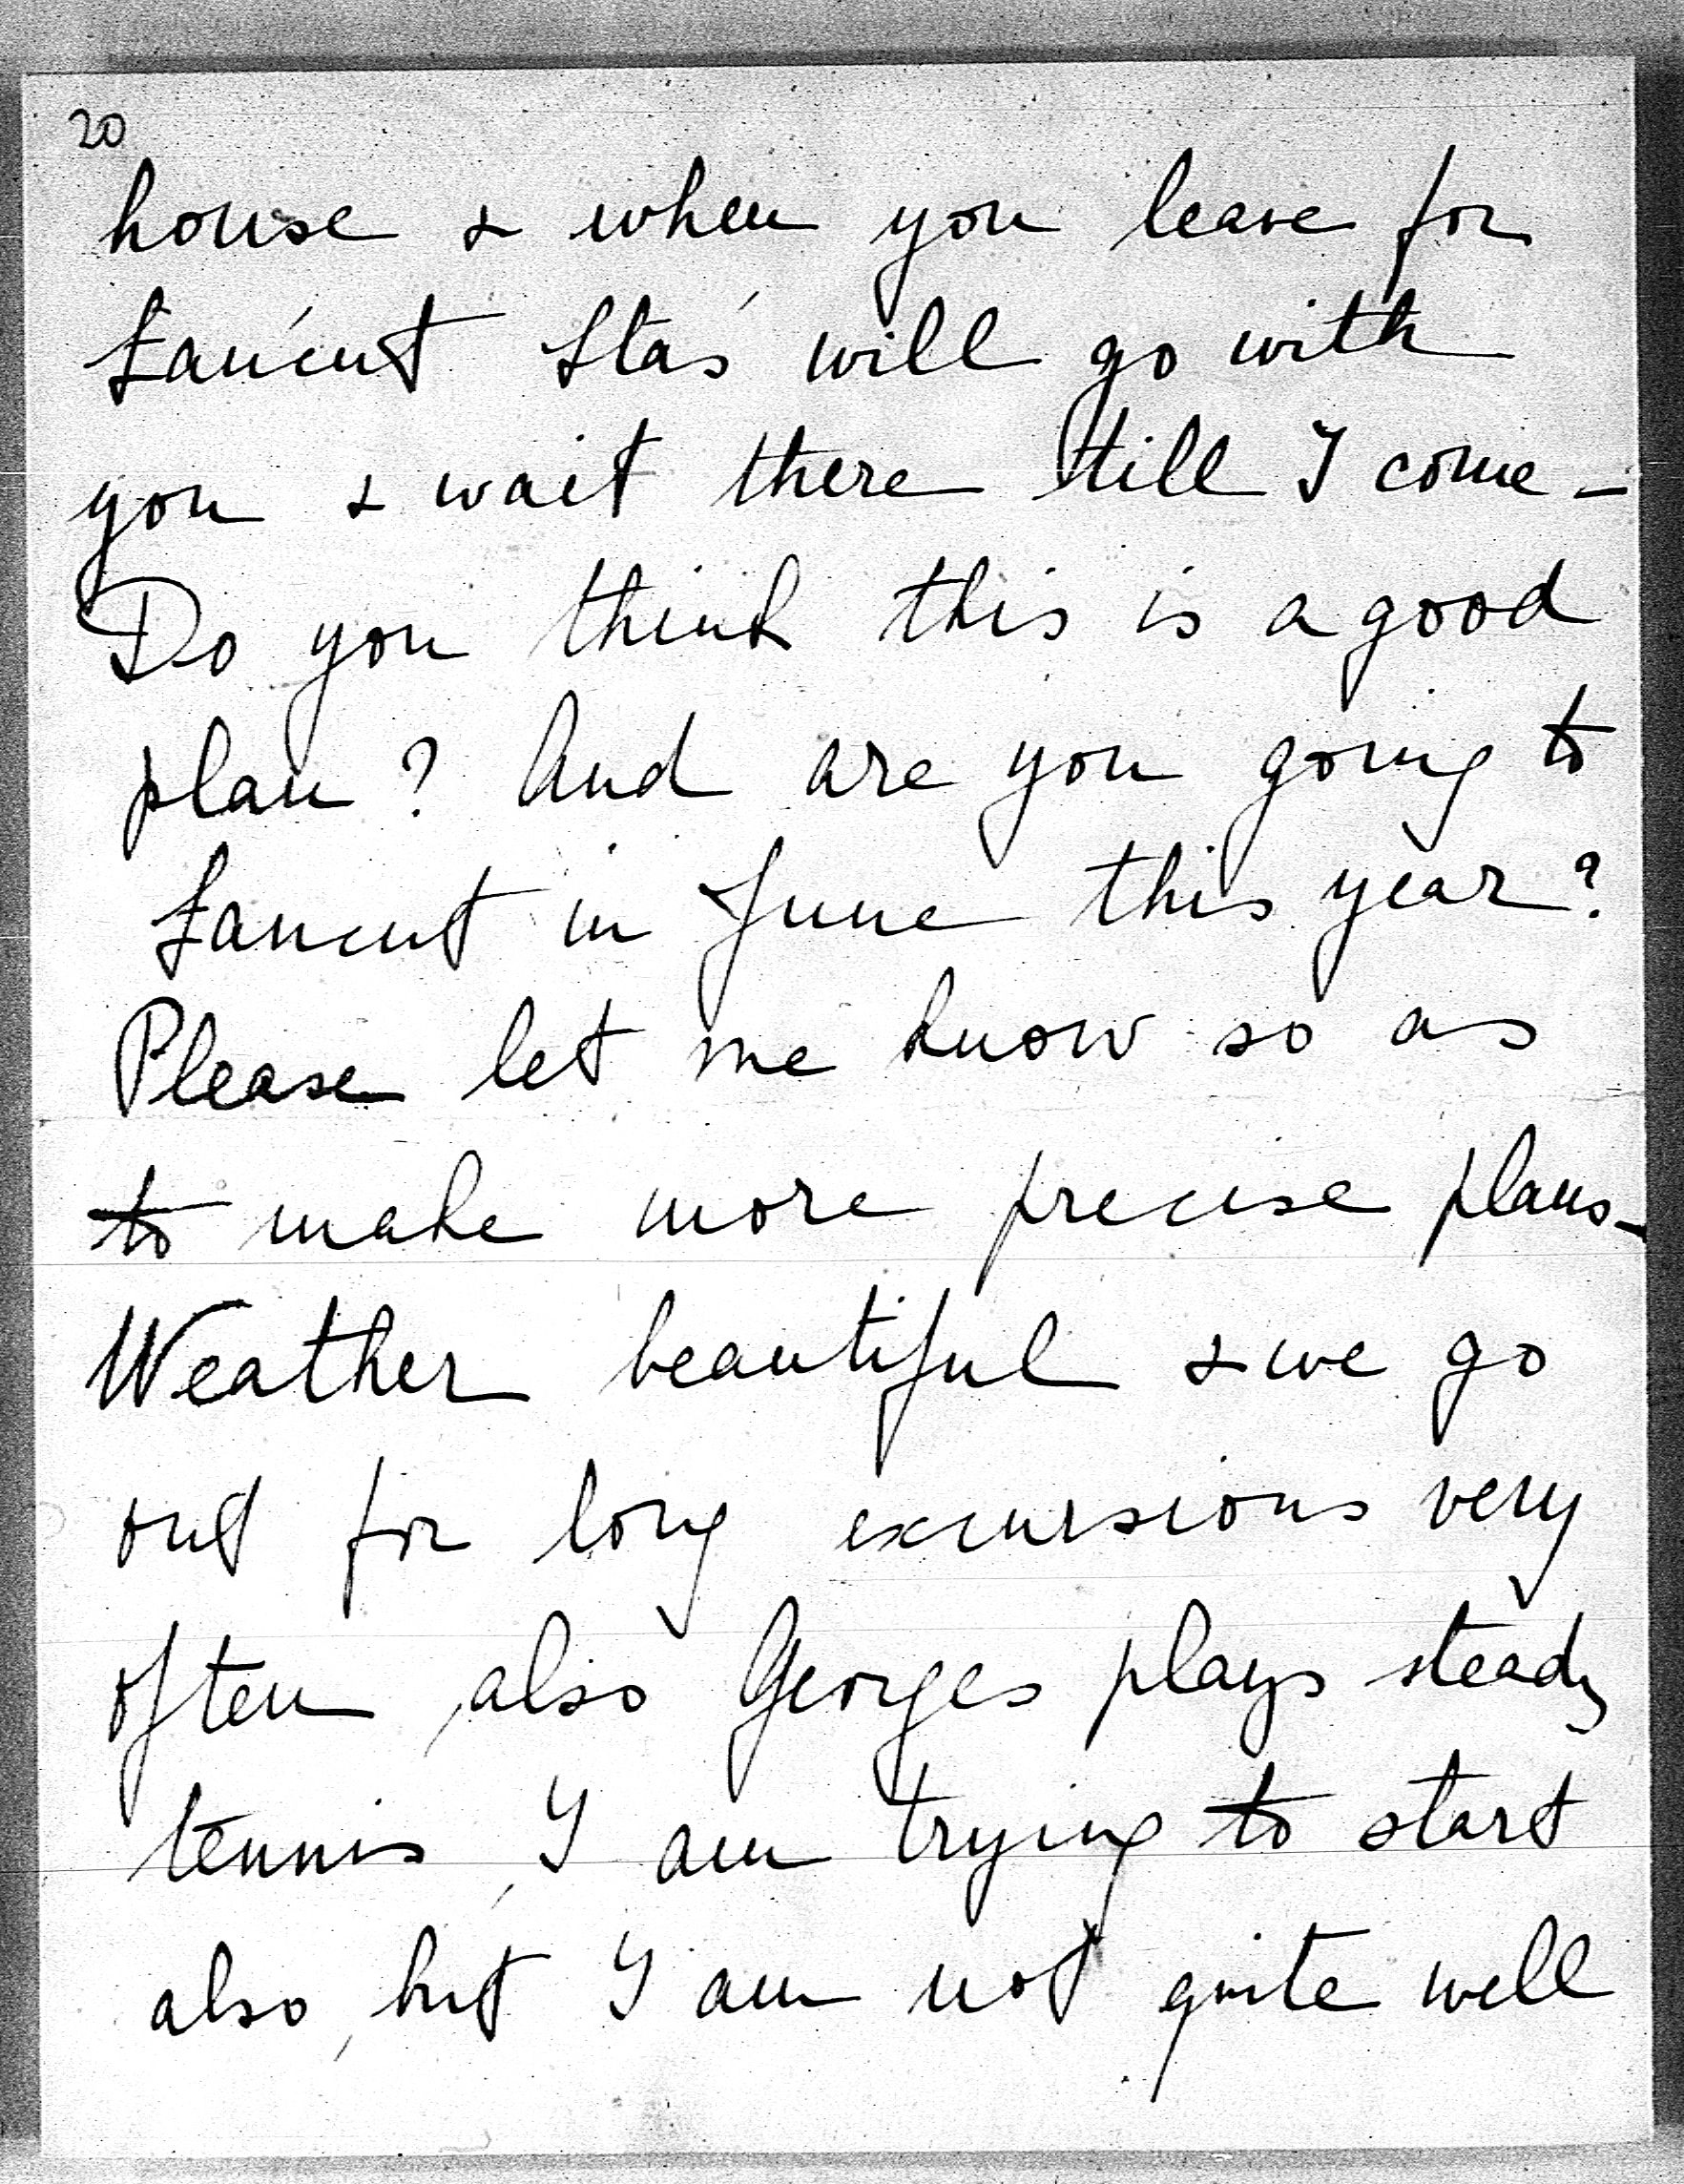 20
house & when you leave for
Łańcut Staś will go with
you & wait there till I come -
Do you think this is a good
plan? And are you going to
Łancut in June this year?
Please let me know so as
to make more precise plans -
Weather beautiful & we go
out for long excursions very
often, also Georges plays steady
tennis, I am trying to start
also, but I am not quite well